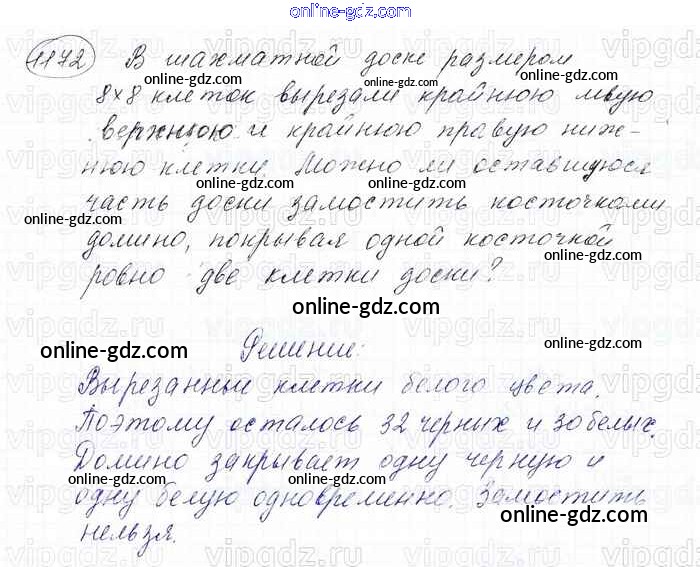 online-gdz.com
1172 В шахматной доске размером
online-gdz.com
8×8 клеток вырезали крайнюю левую
online-gdz.com online-gdz.com
верхнюю и крайнюю правую ниж-
online-gdz.com
нюю клетки. Можно ли оставшуюся
online-gdz.com online-gdz.com
часть доски замостить косточками
online-gdz.com online-gdz.com
домино, покрывая одной косточкой
online-gdz.com
ровно две клетки доски?
online-gdz.com
online-gdz.com Решение: online-gdz.com
Вырезанные клетки белого цвета.
online-gdz.com
Поэтому осталось 32 черных и 30 белых.
online-gdz.com
Домино закрывает одну черную и
online-gdz.com
одну белую одновременно. Замостить
online-gdz.com
нельзя.